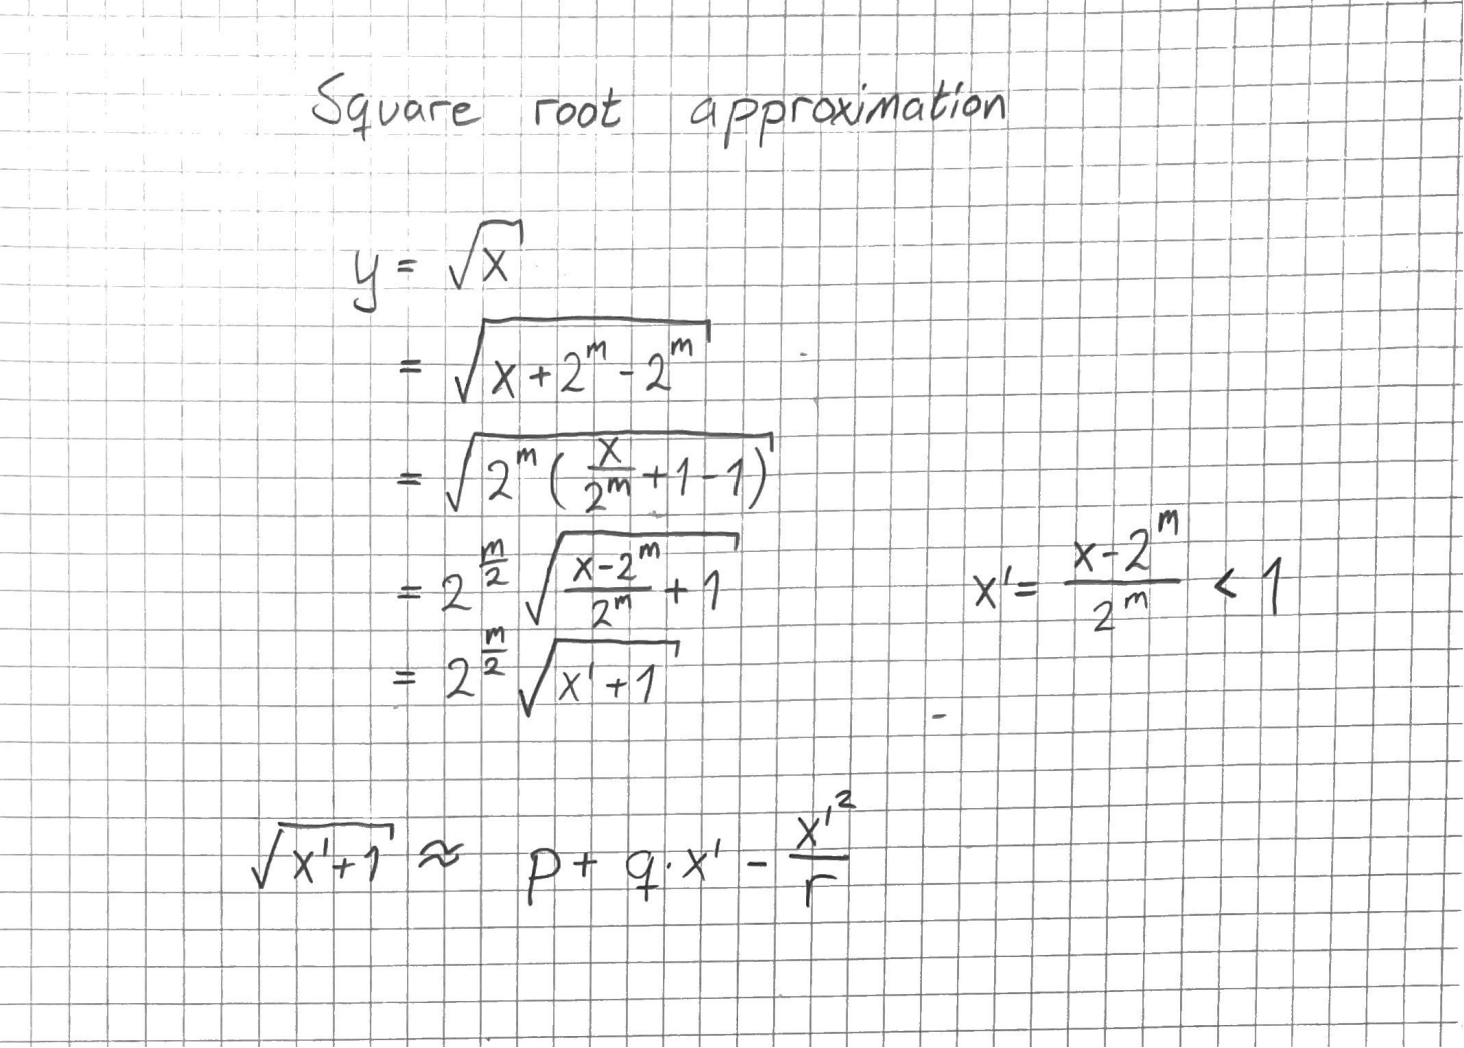 Square root approximation
y = √x
= √(x + 2^m - 2^m)
= √(2^m (x/2^m + 1 - 1))
= 2^(m/2) √((x - 2^m)/2^m + 1)
x' = (x - 2^m)/2^m < 1
= 2^(m/2) √(x' + 1)
√(x' + 1) ≈ p + q · x' - x'^2/r